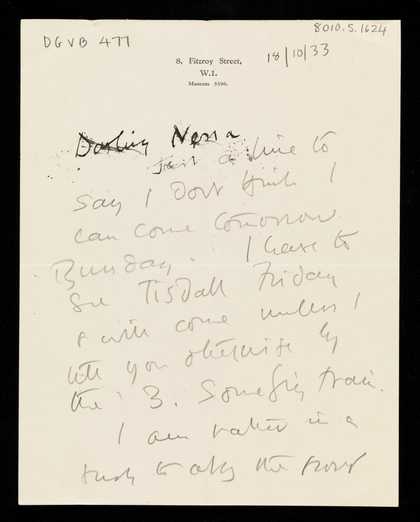 DGVB 477
8010.5.1624
8, Fitzroy Street,
W.1.
Museum 5596.
18/10/33
Darling Nessa
Just a line to
say I don't think I
can come tomorrow
I have to
see Tisdall Friday
& will come unless I
tell you otherwise by
the 3. Something train.
I am rather in a
rush to the